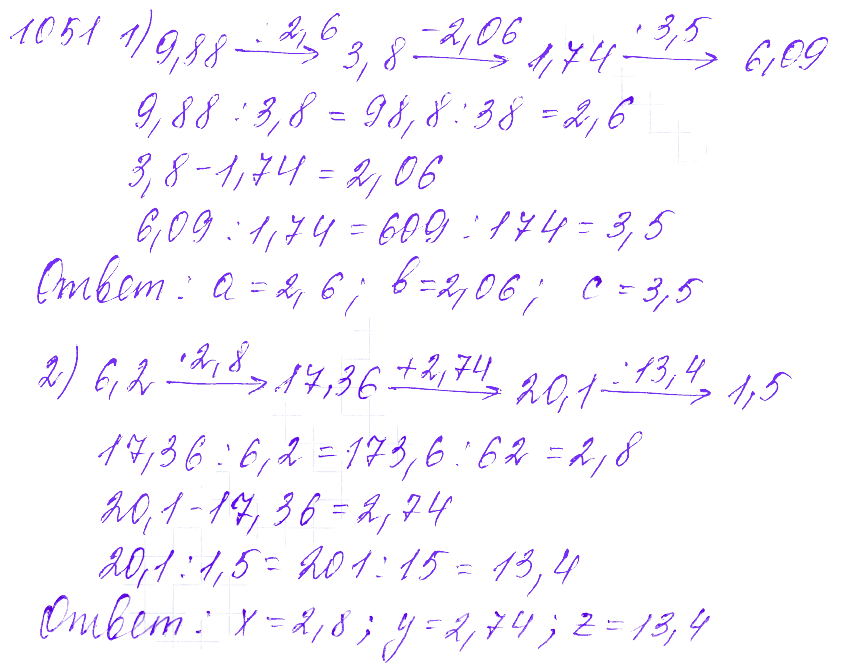 1051 1) 9,88 —:2,6→ 3,8 —-2,06→ 1,74 —·3,5→ 6,09
9,88 : 3,8 = 98,8 : 38 = 2,6
3,8 - 1,74 = 2,06
6,09 : 1,74 = 609 : 174 = 3,5
Ответ: a = 2,6; b = 2,06; c = 3,5
2) 6,2 —·2,8→ 17,36 —+2,74→ 20,1 —:13,4→ 1,5
17,36 : 6,2 = 173,6 : 62 = 2,8
20,1 - 17,36 = 2,74
20,1 : 1,5 = 201 : 15 = 13,4
Ответ: x = 2,8; y = 2,74; z = 13,4